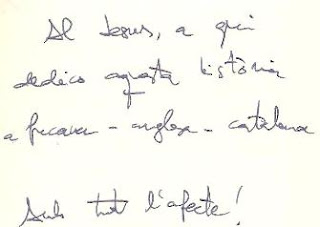 Al Jesus, a qui
dedico aquesta història
africana - anglesa - catalana
Amb tot l'afecte!